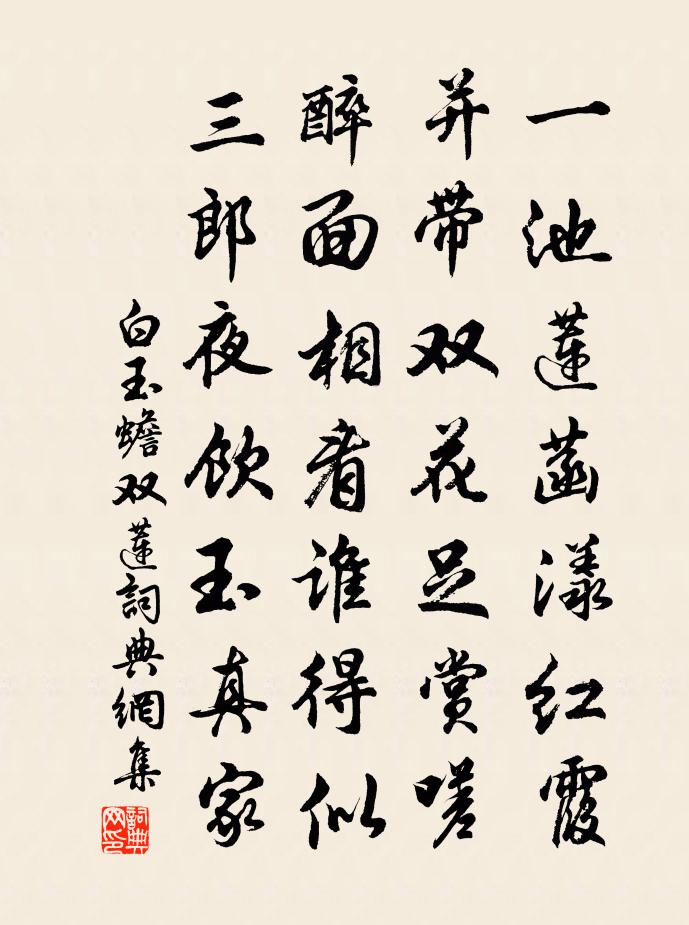 一池莲菡漾红霞
并带双花足赏嗟
醉面相看谁得似
三郎夜饮玉真家
白玉蟾双莲詞典網集
詞典网印